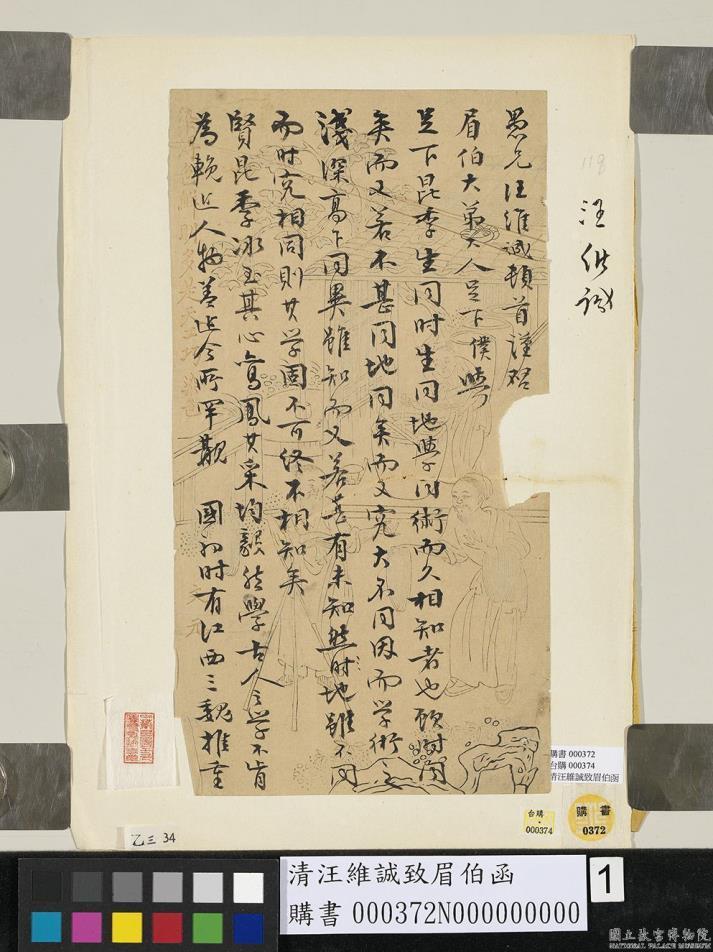 愚兄汪維誠頓首謹啓
眉伯大弟大人足下僕與
足下昆季生同時生同地學同術而久相知者也顧時同
矣而又若不甚同地同矣而又究大不同因而學術之
淺深高下同異雖知而又若甚有未知然時地雖不同
而時究相同則其學固不可終不相知矣
賢昆季冰玉其心鸞鳳其采均毅然學古人之學不肯
為輓近人物蓋近今所罕覯 國初時有江西三魏推重
汪維誠
118
購書 000372
台購 000374
清汪維誠致眉伯函
台購
000374
購書
0372
乙三 34
清汪維誠致眉伯函
購書 000372N000000000
1
國立故宮博物院
NATIONAL PALACE MUSEUM